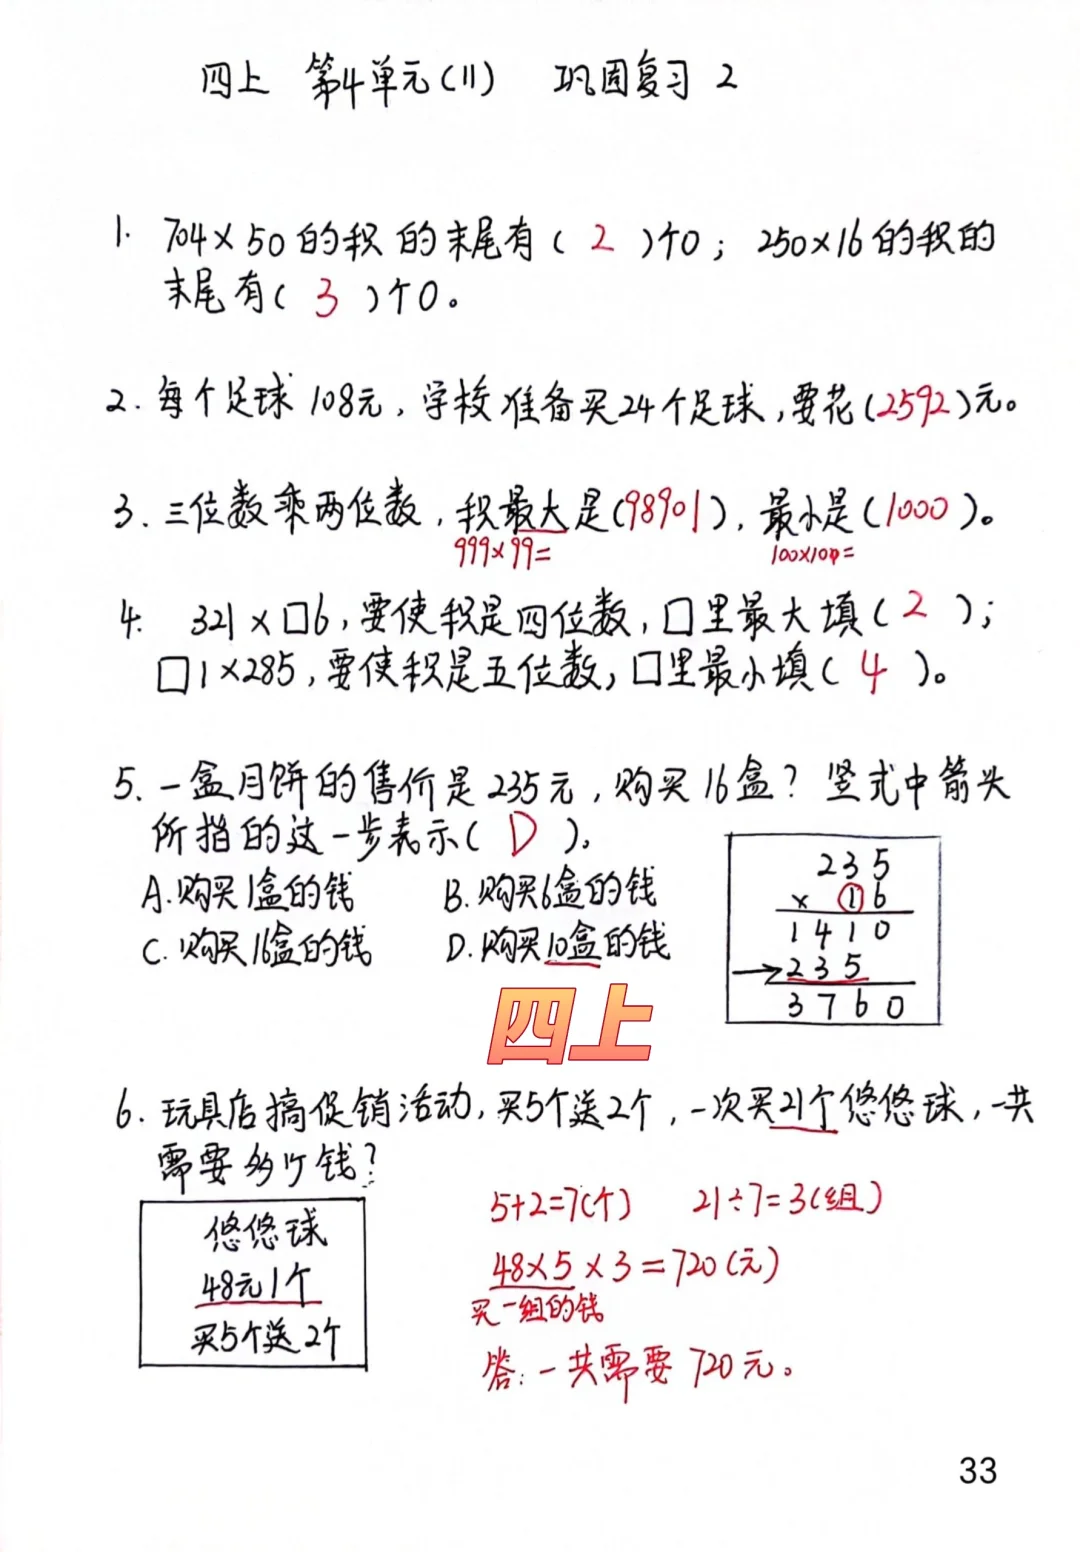 四上 第4单元(11) 巩固复习 2
1. 704×50的积的末尾有( 2 )个0; 250×16的积的
末尾有( 3 )个0。
2. 每个足球108元,学校准备买24个足球,要花(2592)元。
3. 三位数乘两位数,积最大是(98901),最小是(1000)。
999×99= 100×10=
4. 321×口6,要使积是四位数,口里最大填( 2 );
口1×285,要使积是五位数,口里最小填( 4 )。
5. 一盒月饼的售价是235元,购买16盒?竖式中箭头
所指的这一步表示( D )。
A.购买1盒的钱 B.购买6盒的钱
C.购买16盒的钱 D.购买10盒的钱
235
× 16
1410
→235
3760
四上
6. 玩具店搞促销活动,买5个送2个,一次买21个悠悠球,一共
需要多少钱?
悠悠球
48元1个
买5个送2个
5+2=7(个) 21÷7=3(组)
48×5×3=720(元)
买一组的钱
答:一共需要720元。
33